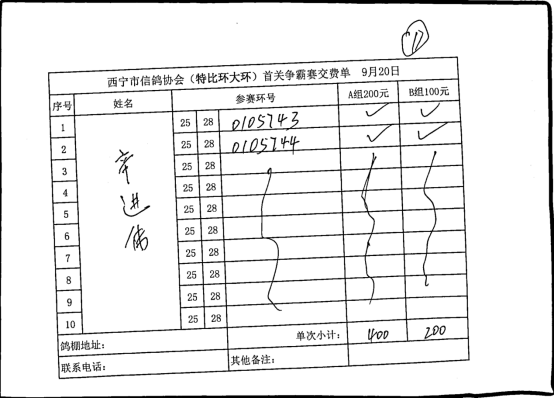 17
西宁市信鸽协会（特比环大环）首关争霸赛交费单 9月20日
序号 姓名 参赛环号 A组200元 B组100元
1 25 28 0105743 ✓ ✓
2 25 28 0105744 ✓ ✓
3 25 28
4 25 28
5 25 28
6 25 28
7 25 28
8 25 28
9 25 28
10 25 28
进伟
鸽棚地址： 单次小计： 400 200
联系电话： 其他备注：